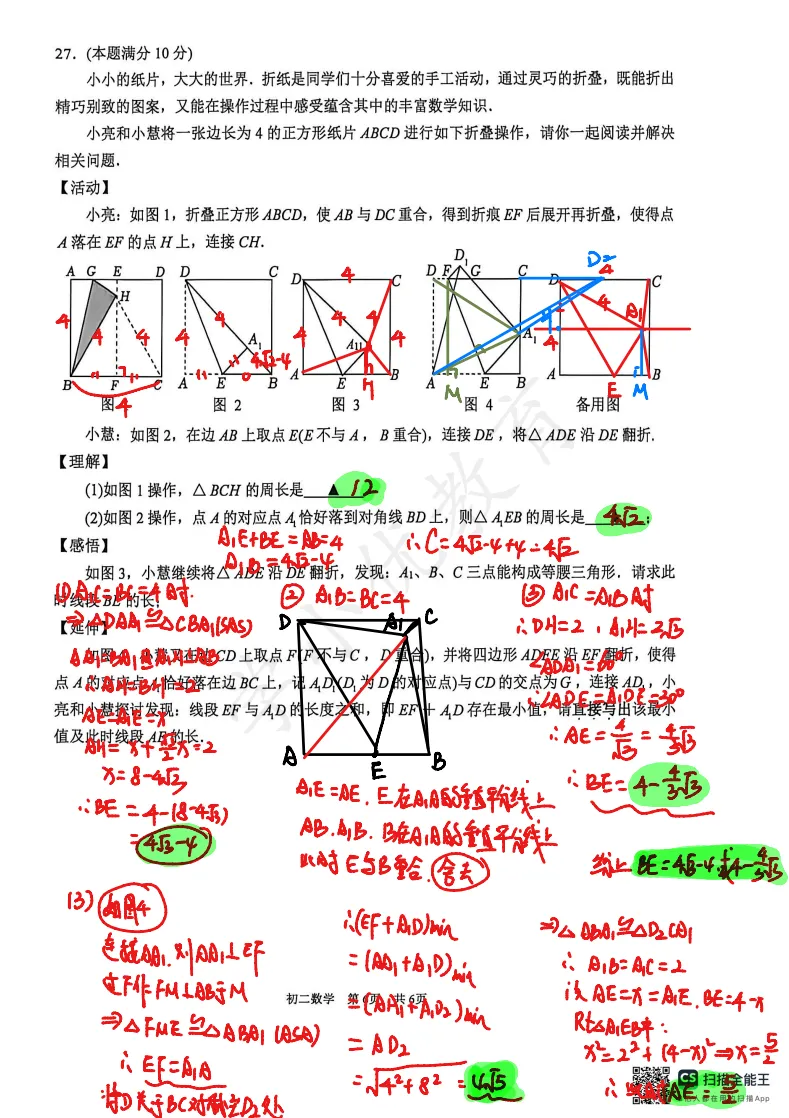 27. (本题满分 10 分)
小小的纸片，大大的世界．折纸是同学们十分喜爱的手工活动，通过灵巧的折叠，既能折出
精巧别致的图案，又能在操作过程中感受蕴含其中的丰富数学知识．
小亮和小慧将一张边长为 4 的正方形纸片 ABCD 进行如下折叠操作，请你一起阅读并解决
相关问题．
【活动】
小亮：如图 1，折叠正方形 ABCD，使 AB 与 DC 重合，得到折痕 EF 后展开再折叠，使得点
A 落在 EF 的点 H 上，连接 CH．
A G E D
H
4 4 4
B F C
4
图
D C
4 4
A₁
4√2-4
A E B
图 2
D 4 C
4 4 4 4
A₁
A E H B
图 3
D₁
D F G C
A₁
A M E B
图 4
D₂
4
D C
4
A₁
4
A E M B
备用图
小慧：如图 2，在边 AB 上取点 E(E 不与 A，B 重合)，连接 DE，将△ ADE 沿 DE 翻折．
【理解】
(1)如图 1 操作，△ BCH 的周长是 ▲ 12
(2)如图 2 操作，点 A 的对应点 A₁ 恰好落到对角线 BD 上，则△ A₁EB 的周长是 4√2 ；
A₁E+BE=AB=4
A₁B=4√2-4
∴C=4√2-4+4=4√2
【感悟】
如图 3，小慧继续将△ ADE 沿 DE 翻折，发现：A₁、B、C 三点能构成等腰三角形．请求此
时线段 BE 的长；
【延伸】
如图 4，小慧又在边 CD 上取点 F(F 不与 C，D 重合)，并将四边形 ADFE 沿 EF 翻折，使得
点 A 的对应点 A₁ 恰好落在边 BC 上，记 A₁D₁(D₁ 为 D 的对应点)与 CD 的交点为 G，连接 AD₁，小
亮和小慧探讨发现：线段 EF 与 A₁D 的长度之和，即 EF + A₁D 存在最小值，请直接写出该最小
值及此时线段 AE 的长．
① A₁C=BC=4时
⇒△DAA₁≌△CBA₁(SAS)
∴AH=BH=2
AE=A₁E=x
AH=x+√3/2x=2
x=8-4√3
∴BE=4-(8-4√3)
=4√3-4
② A₁B=BC=4
D A₁ C
A E B
A₁E=AE．E在A₁A的垂直平分线上
AB=A₁B．B在A₁A的垂直平分线上
此时E与B重合．舍去
③ A₁C=A₁B时
∴DH=2，A₁H=2√3
∠ADA₁=60°
∴∠ADE=∠A₁DE=30°
∴AE=4/√3=4/3√3
∴BE=4-4/3√3
综上 BE=4√3-4或4-4/3√3
(3) 如图4
连接AA₁．则AA₁⊥EF
过F作FM⊥AB于M
⇒△FME≌△ABA₁(ASA)
∴EF=A₁A
将D关于BC对称至D₂处
∴(EF+A₁D)min
=(AA₁+A₁D)min
=(AA₁+A₁D₂)min
=AD₂
=√4²+8²=4√5
⇒△ABA₁≌△D₂CA₁
∴A₁B=A₁C=2
设AE=x=A₁E．BE=4-x
Rt△A₁EB中：
x²=2²+(4-x)²⇒x=5/2
AE=5/2
初二数学 第6页 共6页
CS 扫描全能王